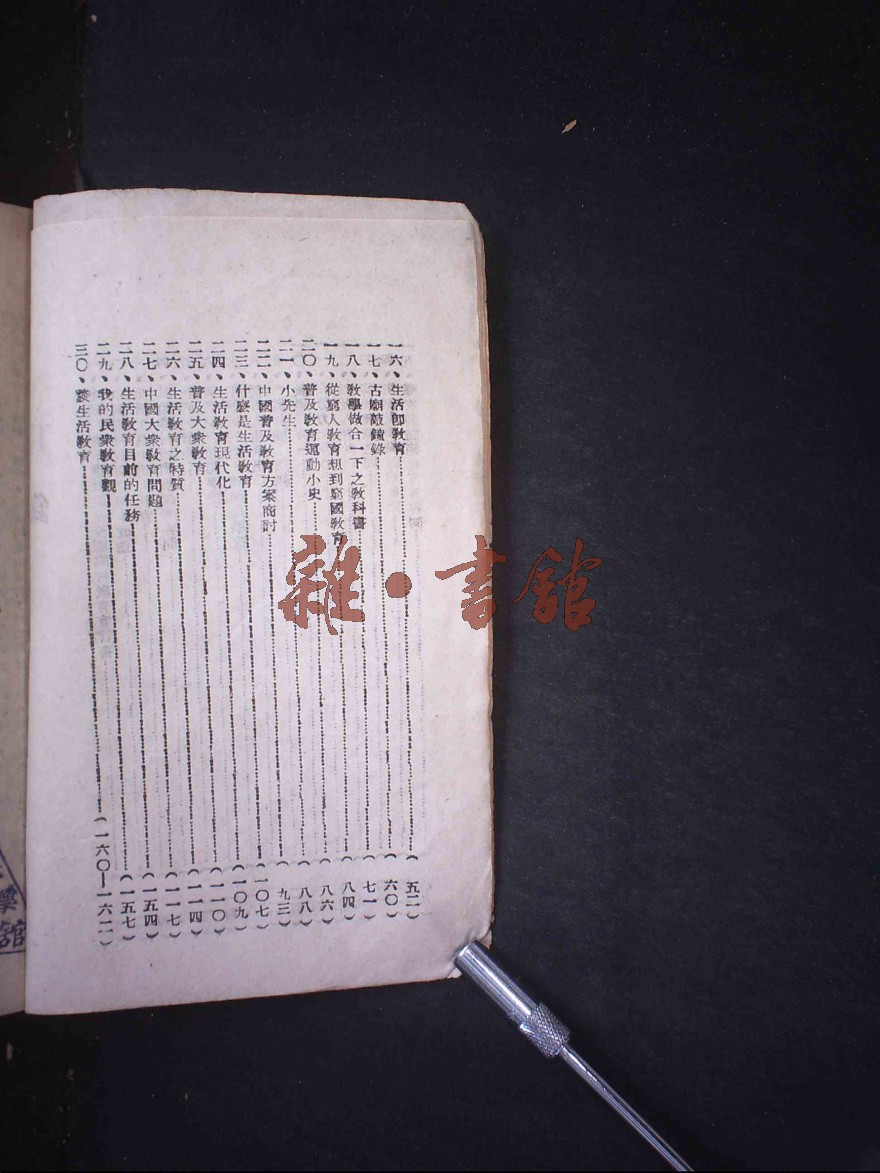 一六、生活即教育………(五二)
一七、古廟敲鐘錄………(六〇)
一八、教學做合一下之教科書………(七一)
一九、從窮人教育想到窮國教育………(八四)
二〇、普及教育運動小史………(八六)
二一、小先生………(八八)
二二、中國普及教育方案商討………(九三)
二三、什麼是生活教育………(一〇七)
二四、生活教育現代化………(一〇九)
二五、普及大衆教育………(一一〇)
二六、生活教育之特質………(一一四)
二七、中國大衆教育問題………(一一七)
二八、生活教育目前的任務………(一五四)
二九、我的民衆教育觀………(一五七)
三〇、談生活教育………(一六〇—一六二)
雜·書館
學
館